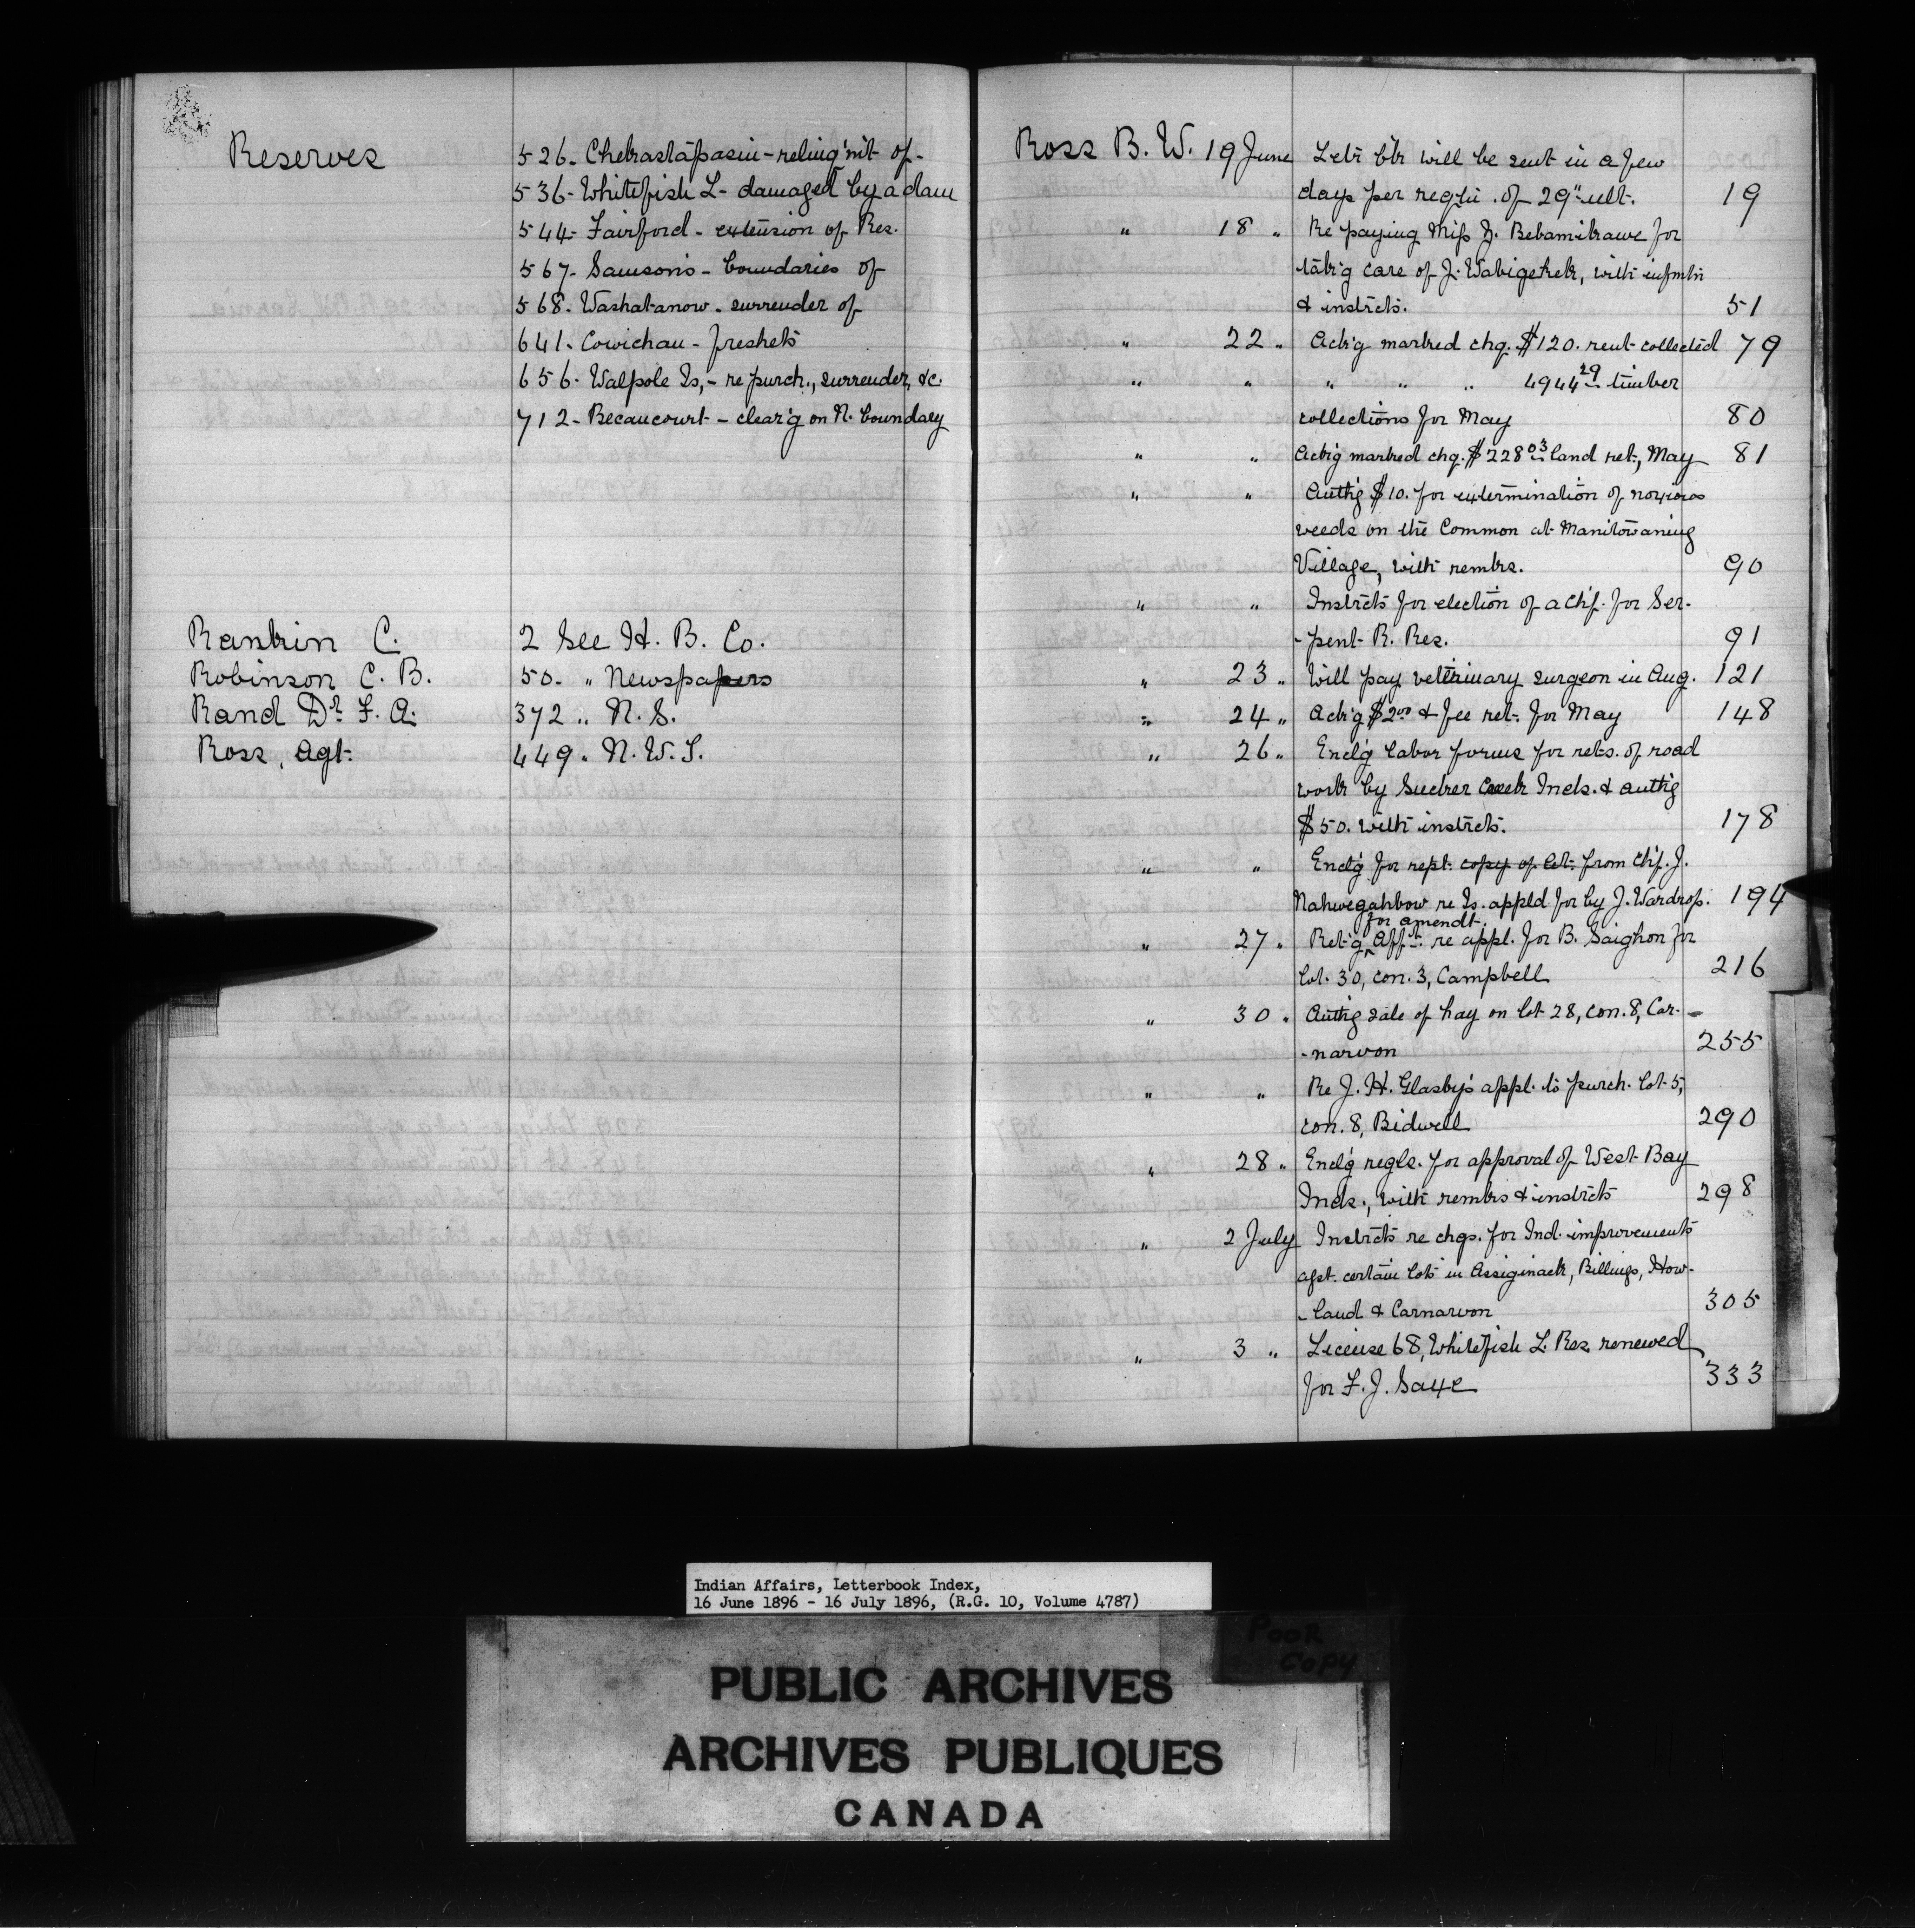 Reserves
526- Chekastapasin - relinq'mt of-
536- Whitefish L- damaged by a dam
544- Fairford - extension of Res.
567- Samson's - boundaries of
568- Washatanow - surrender of
641- Cowichan - freshets
656- Walpole Is, - re purch., surrender, &c.
712- Becancourt - clear'g on N. boundary
Rankin C. 2 See H. B. Co.
Robinson C. B. 50- " Newspapers
Rand Dr F. A. 372 " N. S.
Ross, Agt. 449 " N. W. T.
Ross B. W. 19 June Letr bk will be sent in a few
days per reqtn. of 29" ult. 19
" 18 " Re paying Miss J. Bebamikawe for
tak'g care of J. Wabigekek, with infmtn
& instrcts. 51
" 22 " Ackg marked chq. $120. rent collected 79
" " " " " 4944 29 timber
collections for May 80
" " Ackg marked chq. $228 03 land ret, May 81
" " Authg $10. for extermination of noxious
weeds on the Common at Manitowaning
Village, with remks. 90
" " Instrcts for election of a chf. for Ser-
-pent R. Res. 91
" 23 " Will pay veterinary surgeon in Aug. 121
" 24 " Ackg $2 00 & fee ret. for May 148
" 26 " Encl'g labor forms for rets. of road
work by Sucker Creek Inds. & authg
$50. with instrcts. 178
" " Encl'g for rept. copy of let. from Chf. J.
Nahwegahbow re Is. appld for by J. Wardrop. 194
for amendt.
" 27 " Ret'g ^ Afft. re appl. for B. Saighon for
lot 30, con. 3, Campbell 216
" 30 " Authg sale of hay on lot 28, con. 8, Car-
-narvon 255
" " Re J. H. Glasby's appl. to purch. lot 5,
con. 8, Bidwell 290
" 28 " Encl'g regls. for approval of West Bay
Inds., with remks & instrcts 298
" 2 July Instrcts re chgs. for Ind. improvements
agst. certain lots in Assiginack, Billings, How-
-land & Carnarvon 305
" 3 " License 68, Whitefish L. Res. renewed
for F. J. Saye 333
Indian Affairs, Letterbook Index,
16 June 1896 - 16 July 1896, (R.G. 10, Volume 4787)
POOR
COPY
PUBLIC ARCHIVES
ARCHIVES PUBLIQUES
CANADA